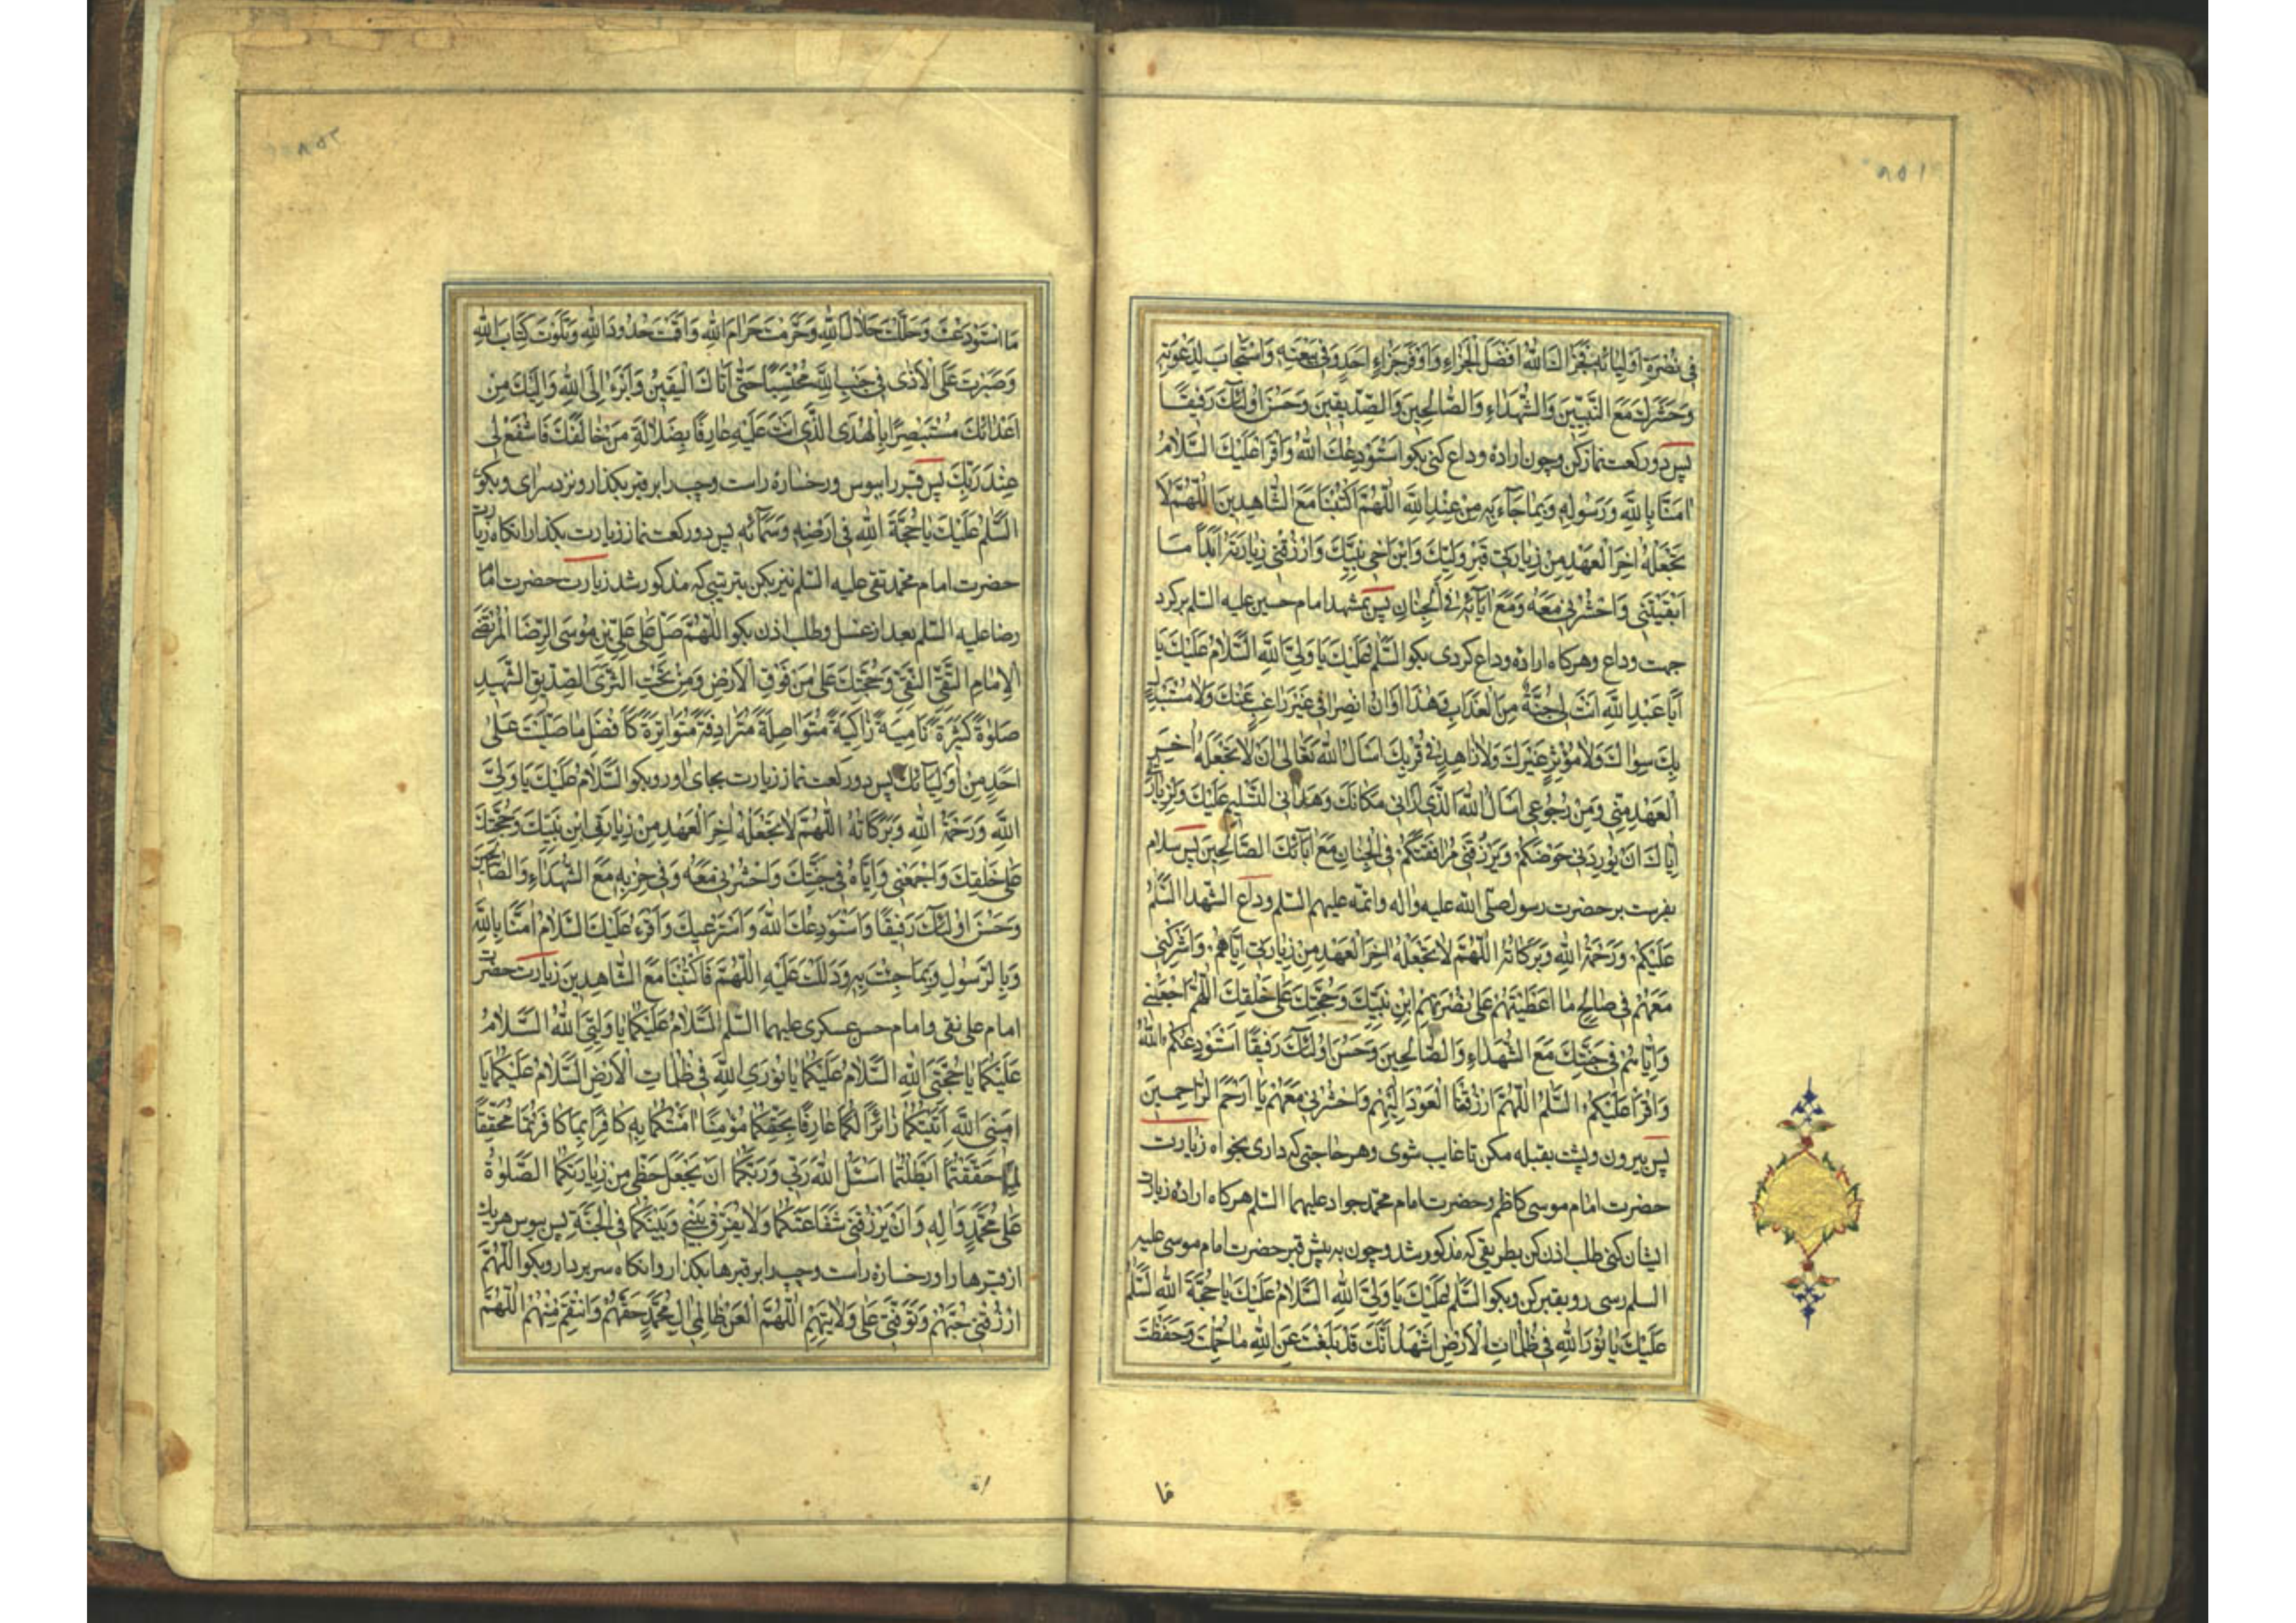 ٨٥١
فِي نُصْرَةِ اَوْلِيَائِهِ فَجَزَاكَ اللهُ اَفْضَلَ الْجَزَاءِ وَاَوْفَرَ جَزَاءِ اَحَدٍ وَفَى بِبَيْعَتِهِ وَاسْتَجَابَ لِدَعْوَتِهِ
وَحَشَرَكَ مَعَ النَّبِيّينَ وَالشُّهَدَاءِ وَالصَّالِحِينَ وَالصِّدّيقِينَ وَحَسُنَ اُولٰئِكَ رَفِيقًا
پس دو ركعت نماز كن و چون اراده وداع كنى بكو اَسْتَوْدِعُكَ اللهَ وَاَقْرَأُ عَلَيْكَ السَّلَامُ
اٰمَنَّا بِاللهِ وَرَسُولِهِ وَبِمَا جَاءَ بِهِ مِنْ عِنْدِ اللهِ اَللّٰهُمَّ اكْتُبْنَا مَعَ الشَّاهِدِينَ اَللّٰهُمَّ لَا
تَجْعَلْهُ اٰخِرَ الْعَهْدِ مِنْ زِيَارَتِي قَبْرِ وَلِيِّكَ وَابْنِ اَخِي نَبِيِّكَ وَارْزُقْنِي زِيَارَتَهُ اَبَدًا مَا
اَبْقَيْتَنِي وَاحْشُرْنِي مَعَهُ وَمَعَ اٰبَائِهِ فِي الْجِنَانِ پس بمشهد امام حسين عليه السلم بركرد
جهت وداع و هركاه اراده وداع كردى بكو اَلسَّلٰمُ عَلَيْكَ يَا وَلِيَّ اللهِ اَلسَّلَامُ عَلَيْكَ يَا
اَبَا عَبْدِ اللهِ اَنْتَ لِي جُنَّةٌ مِنَ الْعَذَابِ وَهٰذَا اَوَانُ انْصِرَافِي غَيْرَ رَاغِبٍ عَنْكَ وَلَا مُسْتَبْدِلٍ
بِكَ سِوَاكَ وَلَا مُؤْثِرٍ غَيْرَكَ وَلَا زَاهِدٍ فِي قُرْبِكَ اَسْأَلُ اللهَ تَعَالٰى اَنْ لَا تَجْعَلَهُ اٰخِرَ
الْعَهْدِ مِنِّي وَمِنْ رُجُوعِي اَسْأَلُ اللهَ الَّذِي اَرَانِي مَكَانَكَ وَهَدَانِي التَّسْلِيمِ عَلَيْكَ وَلِزِيَارَتِي
اِيَّاكَ اَنْ يُورِدَنِي حَوْضَكُمْ وَيَرْزُقَنِي مُرَافَقَتَكُمْ فِي الْجِنَانِ مَعَ اٰبَائِكَ الصَّالِحِينَ پس سلام
بفرست بر حضرت رسول صلى الله عليه واله و ائمه عليهم السلم وداع الشهدا اَلسَّلٰمُ
عَلَيْكُمْ وَرَحْمَةُ اللهِ وَبَرَكَاتُهُ اَللّٰهُمَّ لَا تَجْعَلْهُ اٰخِرَ الْعَهْدِ مِنْ زِيَارَتِي اِيَّاهُمْ وَاَشْرِكْنِي
مَعَهُمْ فِي صَالِحِ مَا اَعْطَيْتَهُمْ عَلٰى نُصْرَتِهِمْ ابْنِ نَبِيِّكَ وَحُجَّتِكَ عَلٰى خَلْقِكَ اَللّٰهُمَّ اجْعَلْنِي
وَاِيَّاهُمْ فِي جَنَّتِكَ مَعَ الشُّهَدَاءِ وَالصَّالِحِينَ وَحَسُنَ اُولٰئِكَ رَفِيقًا اَسْتَوْدِعُكُمُ اللهَ
وَاَقْرَأُ عَلَيْكُمُ السَّلٰمُ اَللّٰهُمَّ ارْزُقْنَا الْعَوْدَ اِلَيْهِمْ وَاحْشُرْنِي مَعَهُمْ يَا اَرْحَمَ الرَّاحِمِينَ
پس بيرون و پشت بقبله مكن تا غايب شوى و هر حاجتى كه دارى بخواه زيارت
حضرت امام موسى كاظم و حضرت امام محمد جواد عليهما السلم هركاه اراده زيارت
ايشان كنى طلب اذن كن بطريقى كه مذكور شد و چون به پيش قبر حضرت امام موسى عليه
السلم رسى رو بقبر كن و بكو اَلسَّلٰمُ عَلَيْكَ يَا وَلِيَّ اللهِ اَلسَّلَامُ عَلَيْكَ يَا حُجَّةَ اللهِ اَلسَّلٰمُ
عَلَيْكَ يَا نُورَ اللهِ فِي ظُلُمَاتِ الْاَرْضِ اَشْهَدُ اَنَّكَ قَدْ بَلَّغْتَ عَنِ اللهِ مَا حُمِّلْتَ وَحَفِظْتَ
ما
٨٥٢
مَا اسْتُودِعْتَ وَحَلَّلْتَ حَلَالَ اللهِ وَحَرَّمْتَ حَرَامَ اللهِ وَاَقَمْتَ حُدُودَ اللهِ وَتَلَوْتَ كِتَابَ اللهِ
وَصَبَرْتَ عَلَى الْاَذٰى فِي جَنْبِ اللهِ مُحْتَسِبًا حَتّٰى اَتَاكَ الْيَقِينُ وَاَبْرَءُ اِلَى اللهِ وَاِلَيْكَ مِنْ
اَعْدَائِكَ مُسْتَبْصِرًا بِالْهُدَى الَّذِي اَنْتَ عَلَيْهِ عَارِفًا بِضَلَالَةِ مَنْ خَالَفَكَ فَاشْفَعْ لِي
عِنْدَ رَبِّكَ پس قبر را ببوس و رخساره راست و چپ را بر قبر بكذار و نزد سر اى و بكو
اَلسَّلٰمُ عَلَيْكَ يَا حُجَّةَ اللهِ فِي اَرْضِهِ وَسَمَائِهِ پس دو ركعت نماز زيارت بكذار انكاه زيارت
حضرت امام محمد تقى عليه السلم نيز بكن بترتيبى كه مذكور شد زيارت حضرت امام
رضا عليه السلم بعد از غسل و طلب اذن بكو اَللّٰهُمَّ صَلِّ عَلٰى عَلِيِّ بْنِ مُوسَى الرِّضَا الْمُرْتَضٰى
الْاِمَامِ التَّقِيِّ النَّقِيِّ وَحُجَّتِكَ عَلٰى مَنْ فَوْقَ الْاَرْضِ وَمَنْ تَحْتَ الثَّرٰى الصِّدّيقِ الشَّهِيدِ
صَلٰوةً كَثِيرَةً نَامِيَةً زَاكِيَةً مُتَوَاصِلَةً مُتَرَادِفَةً مُتَوَاتِرَةً كَاَفْضَلِ مَا صَلَّيْتَ عَلٰى
اَحَدٍ مِنْ اَوْلِيَائِكَ پس دو ركعت نماز زيارت بجاى اور و بكو اَلسَّلَامُ عَلَيْكَ يَا وَلِيَّ
اللهِ وَرَحْمَةُ اللهِ وَبَرَكَاتُهُ اَللّٰهُمَّ لَا تَجْعَلْهُ اٰخِرَ الْعَهْدِ مِنْ زِيَارَتِي ابْنِ نَبِيِّكَ وَحُجَّتِكَ
عَلٰى خَلْقِكَ وَاجْمَعْنِي وَاِيَّاهُ فِي جَنَّتِكَ وَاحْشُرْنِي مَعَهُ وَفِي حِزْبِهِ مَعَ الشُّهَدَاءِ وَالصَّالِحِينَ
وَحَسُنَ اُولٰئِكَ رَفِيقًا وَاَسْتَوْدِعُكَ اللهَ وَاَسْتَرْعِيكَ وَاَقْرَءُ عَلَيْكَ السَّلَامُ اٰمَنَّا بِاللهِ
وَبِالرَّسُولِ وَبِمَا جِئْتَ بِهِ وَدَلَلْتَ عَلَيْهِ اَللّٰهُمَّ فَاكْتُبْنَا مَعَ الشَّاهِدِينَ زيارت حضرت
امام على نقى و امام حسن عسكرى عليهما السلم اَلسَّلَامُ عَلَيْكُمَا يَا وَلِيَّيِ اللهِ اَلسَّلَامُ
عَلَيْكُمَا يَا حُجَّتَيِ اللهِ اَلسَّلَامُ عَلَيْكُمَا يَا نُورَيِ اللهِ فِي ظُلُمَاتِ الْاَرْضِ اَلسَّلَامُ عَلَيْكُمَا يَا
اَمِينَيِ اللهِ اَتَيْتُكُمَا زَائِرًا لَكُمَا عَارِفًا بِحَقِّكُمَا مُؤْمِنًا بِمَا اٰمَنْتُمَا بِهِ كَافِرًا بِمَا كَفَرْتُمَا مُحَقِّقًا
لِمَا حَقَّقْتُمَا اَبْطَلْتُمَا اَسْئَلُ اللهَ رَبّي وَرَبَّكُمَا اَنْ يَجْعَلَ حَظّي مِنْ زِيَارَتِكُمَا الصَّلٰوةُ
عَلٰى مُحَمَّدٍ وَاٰلِهِ وَاَنْ يَرْزُقَنِي شَفَاعَتَكُمَا وَلَا يُفَرِّقَ بَيْنِي وَبَيْنَكُمَا فِي الْجَنَّةِ پس ببوس هر يك
از قبرها را و رخساره راست و چپ را بر قبرها بكذار و انكاه سر بردار و بكو اَللّٰهُمَّ
ارْزُقْنِي حُبَّهُمْ وَتَوَفَّنِي عَلٰى وَلَايَتِهِمْ اَللّٰهُمَّ الْعَنْ ظَالِمِي اٰلِ مُحَمَّدٍ حَقَّهُمْ وَانْتَقِمْ مِنْهُمْ اَللّٰهُمَّ